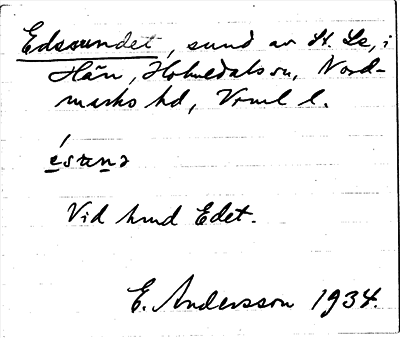 Edssundet, sund av St. Le, i
Hån, Holmedals sn, Nord-
marks hd, Vrml l.
Vid hmd Edet.
E. Andersson 1934.